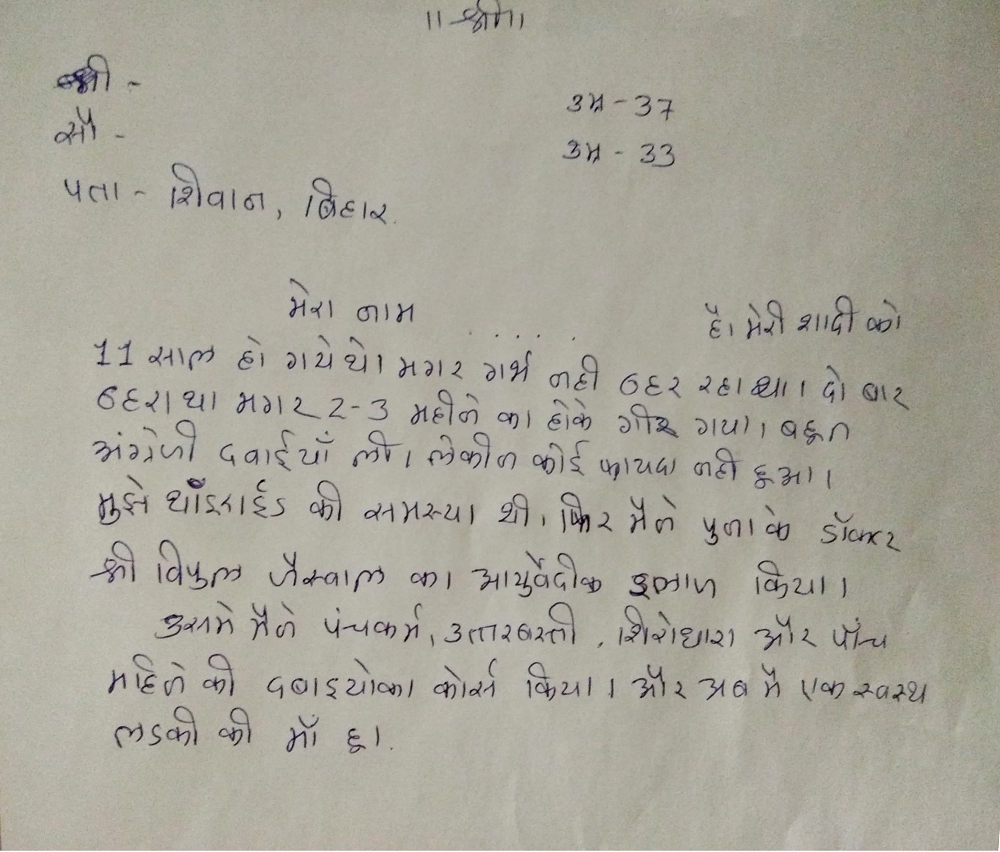 ।। श्री ।।
श्री -
उम्र - 37
सौ -
उम्र - 33
पता - शिवान, बिहार.
मेरा नाम . . . . . है। मेरी शादी को
11 साल हो गये थे। मगर गर्भ नही ठहर रहा था। दो बार
ठहरा था मगर 2-3 महीने का होके गीर गया। बहुत
अंग्रेजी दवाईयाँ ली। लेकीन कोई फायदा नही हुआ।
मुझे थॉइराईड की समस्या थी। फिर मैने पुना के डॉक्टर
श्री विपुल जैस्वाल का आयुर्वेदीक इलाज किया।
उसमे मैने पंचकर्म, उत्तरबस्ती, शिरोधारा और पाँच
महिने की दवाइयोका कोर्स किया। और अब मै एक स्वस्थ
लडकी की माँ हु।.